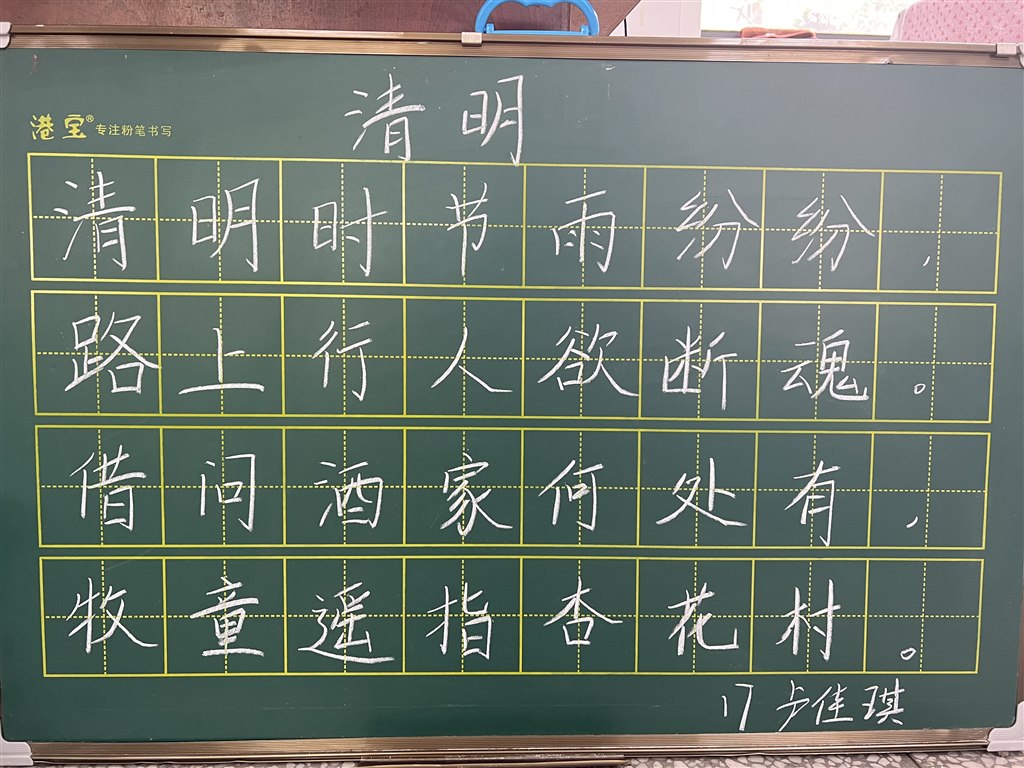 清明
港宝® 专注粉笔书写
清明时节雨纷纷，
路上行人欲断魂。
借问酒家何处有，
牧童遥指杏花村。
17 卢佳琪